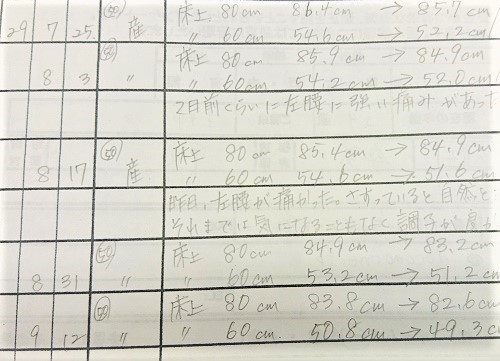 床上 80cm 86.4cm → 85.7cm
29 7 25. 産 〃 60cm 54.6cm → 52.2cm
床上 80cm 85.9cm → 84.9cm
8 3 〃 〃 60cm 54.2cm → 52.0cm
2日前くらいに左腰に強い痛みがあった
50 床上 80cm 85.4cm → 84.9cm
8 17 産 〃 60cm 54.6cm → 51.6cm
昨日、左腰が痛かった。さすっていると自然と
それまでは気になることもなく調子が良か
50 床上 80cm 84.9cm → 83.2cm
8 31 〃 〃 60cm 53.2cm → 51.2cm
床上 80cm 83.8cm → 82.6cm
9 12 〃 〃 60cm. 50.8cm → 49.3cm